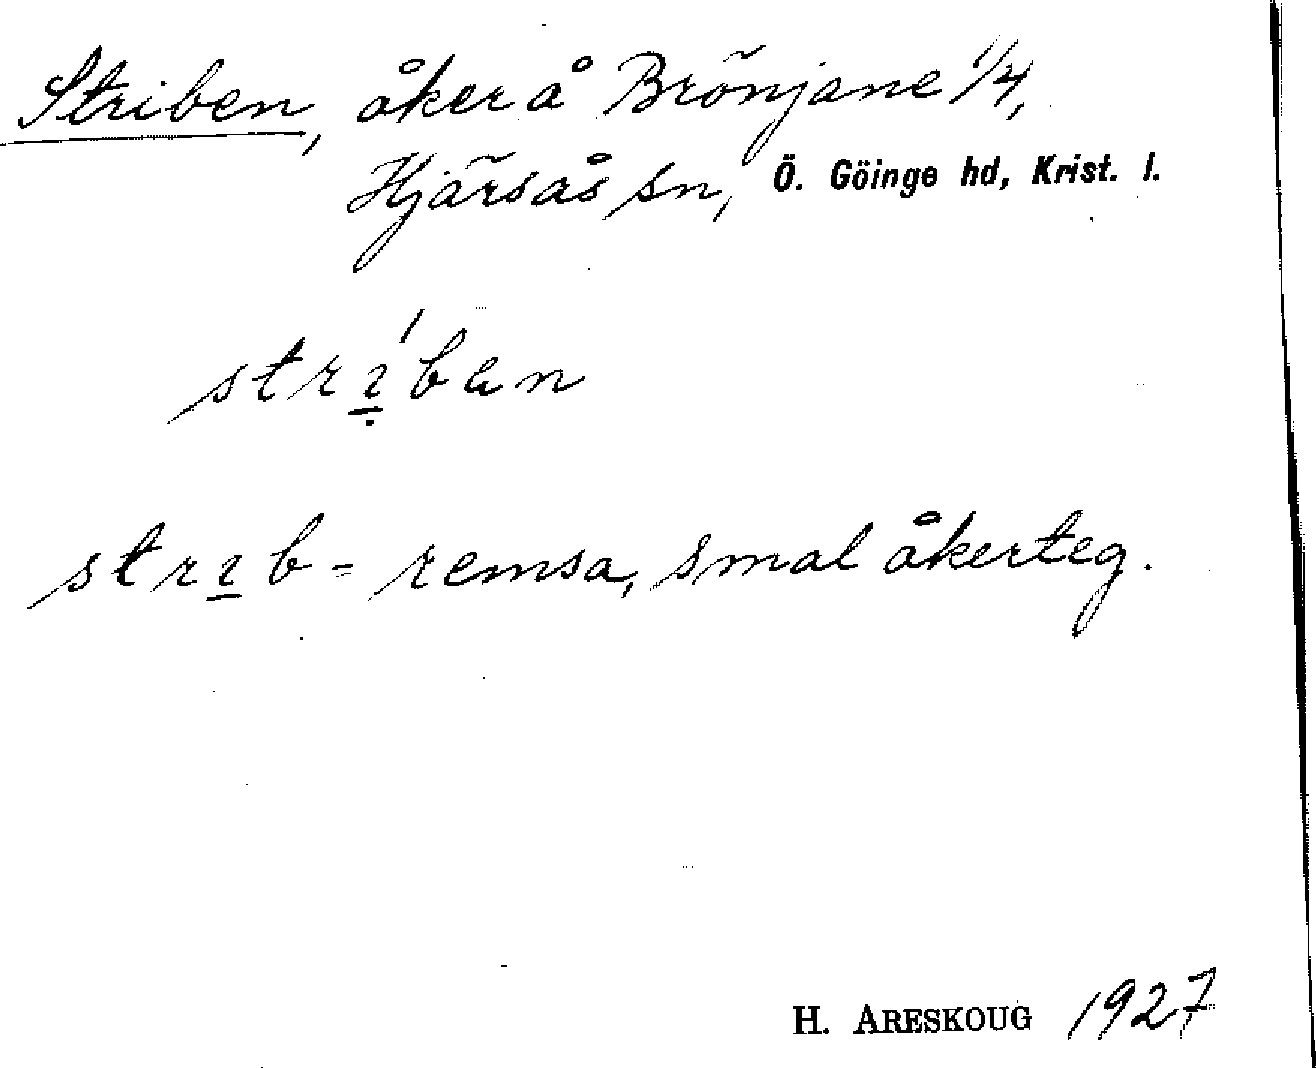 Striben, åker å Brönjane 1/4,
Hjärsås sn, Ö. Göinge hd, Krist. l.
strı̱́ban
strı̱b = remsa, smal åkerteg.
H. ARESKOUG 1927